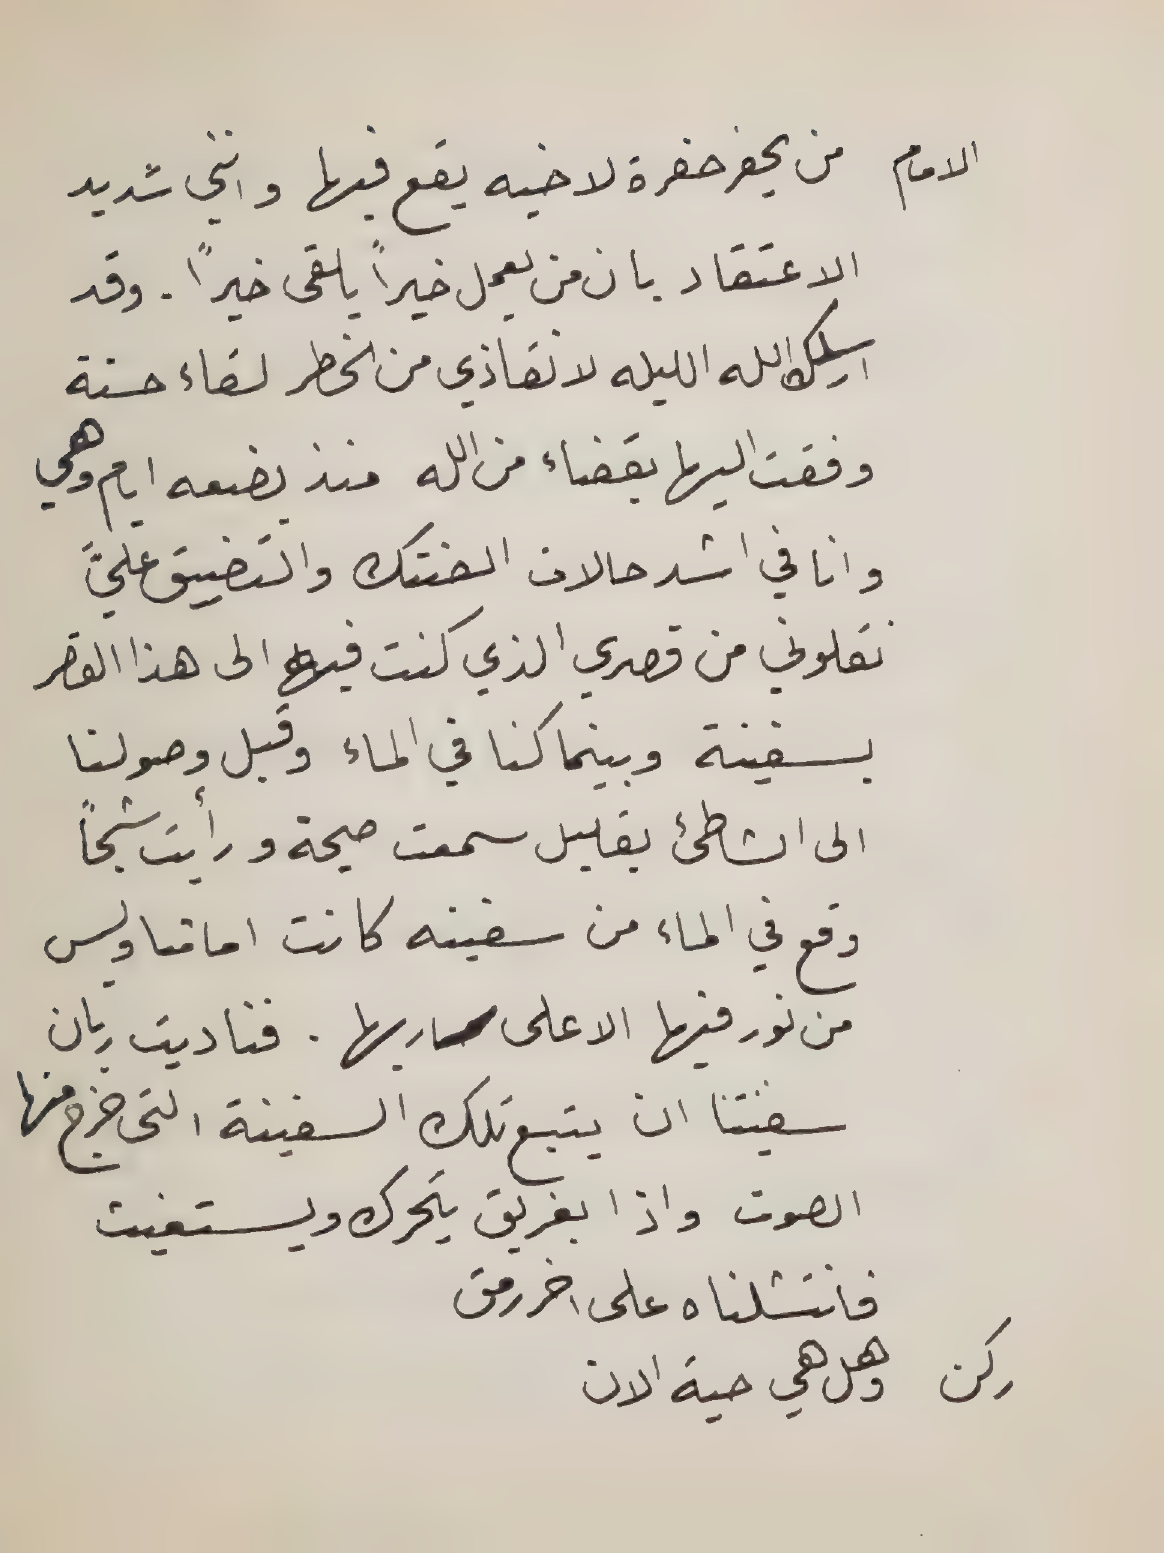 الامام من يحفر حفرة لاخيه يقع فيها وانني شديد
الاعتقاد بان من يعمل خيراً يلقى خيراً . وقد
ارسلك الله الليله لانقاذي من الخطر لقاء حسنة
وفقت اليها بقضاء من الله منذ بضعه ايام وهي
وانا في اشد حالات الضنك والتضييق عليَّ
نقلوني من قصري الذي كنت فيه الى هذا القصر
بسفينة وبينما كنا في الماء وقبل وصولنا
الى الشاطئ بقليل سمعت صيحة ورأيت شبحاً
وقع في الماء من سفينه كانت امامنا وليس
من نور فيها الا على صاريها . فناديت ربان
سفينتنا ان يتبع تلك السفينة التي خرج منها
الصوت واذا بغريق يتحرك ويستغيث
فانتشلناه على اخر رمق
ركن وهل هي حية الان